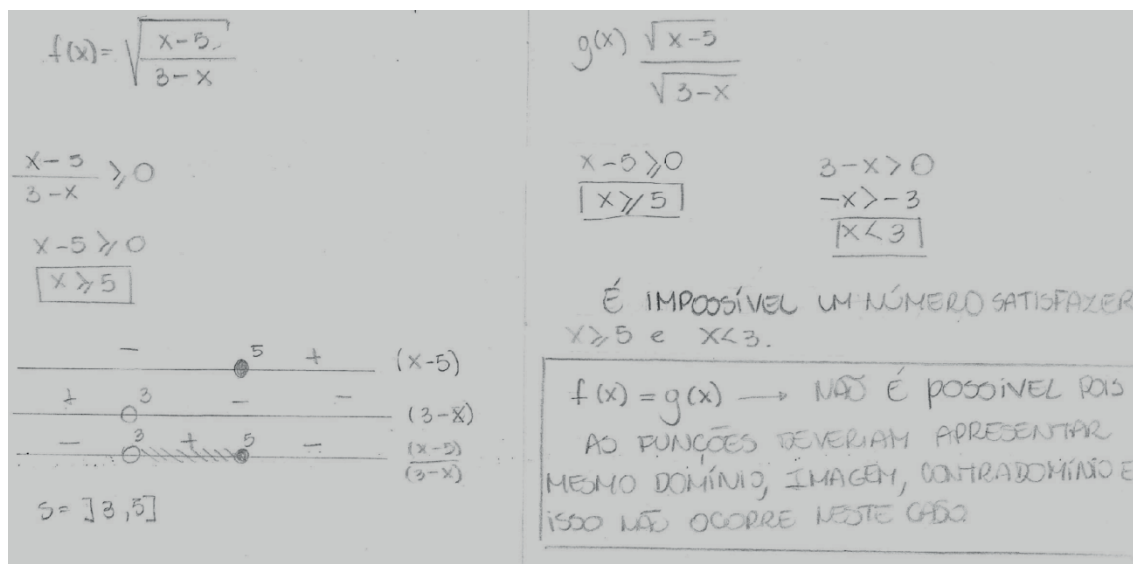 f(x)= √((x-5)/(3-x))
(x-5)/(3-x) ⩾ 0
x-5 ⩾ 0
x ⩾ 5
- 5 + (x-5)
+ 3 - - (3-x)
- 3 + 5 - (x-5)/(3-x)
S= ]3,5]
g(x) √(x-5)/√(3-x)
x-5 ⩾ 0
x ⩾ 5
3-x > 0
-x > -3
x < 3
É IMPOSSÍVEL UM NÚMERO SATISFAZER
x ⩾ 5 e x < 3.
f(x) = g(x) → NÃO É POSSÍVEL POIS
AS FUNÇÕES DEVERIAM APRESENTAR
MESMO DOMÍNIO, IMAGEM, CONTRADOMÍNIO E
ISSO NÃO OCORRE NESTE CASO